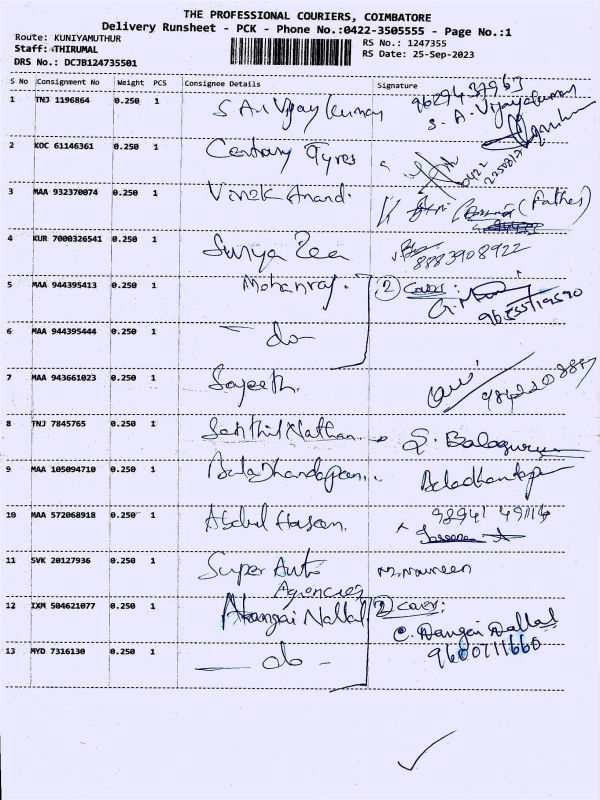 THE PROFESSIONAL COURIERS, COIMBATORE
Delivery Runsheet - PCK - Phone No.:0422-3505555 - Page No.:1
Route: KUNIYAMUTHUR
RS No.: 1247355
Staff: THIRUMAL
RS Date: 25-Sep-2023
DRS No.: DCJB124735501
S No Consignment No Weight PCS Consignee Details Signature
1 TNJ 1196864 0.250 1 S.A. Vijay Kumar 9629437963
S. A. Vijayakumar
2 KOC 61146361 0.250 1 Century Tyres
3 MAA 932370074 0.250 1 Vivek Anand. (Father)
4 KUR 7000326541 0.250 1 Surya 8883908922
5 MAA 944395413 0.250 1 Mohanraj. 2 Cover:
6 MAA 944395444 0.250 1 - do -
7 MAA 943661023 0.250 1 Sajeeth.
8 TNJ 7845765 0.250 1 Senthil Nathan S. Balaguru
9 MAA 105094710 0.250 1 Baladhandapani..
10 MAA 572068918 0.250 1 Abdul Hasan. 98941 49114
11 SVK 20127936 0.250 1 Super Auto
Agencies
12 IXM 504621077 0.250 1 2 Cover:
13 MYD 7316130 0.250 1 - do - 9600711660